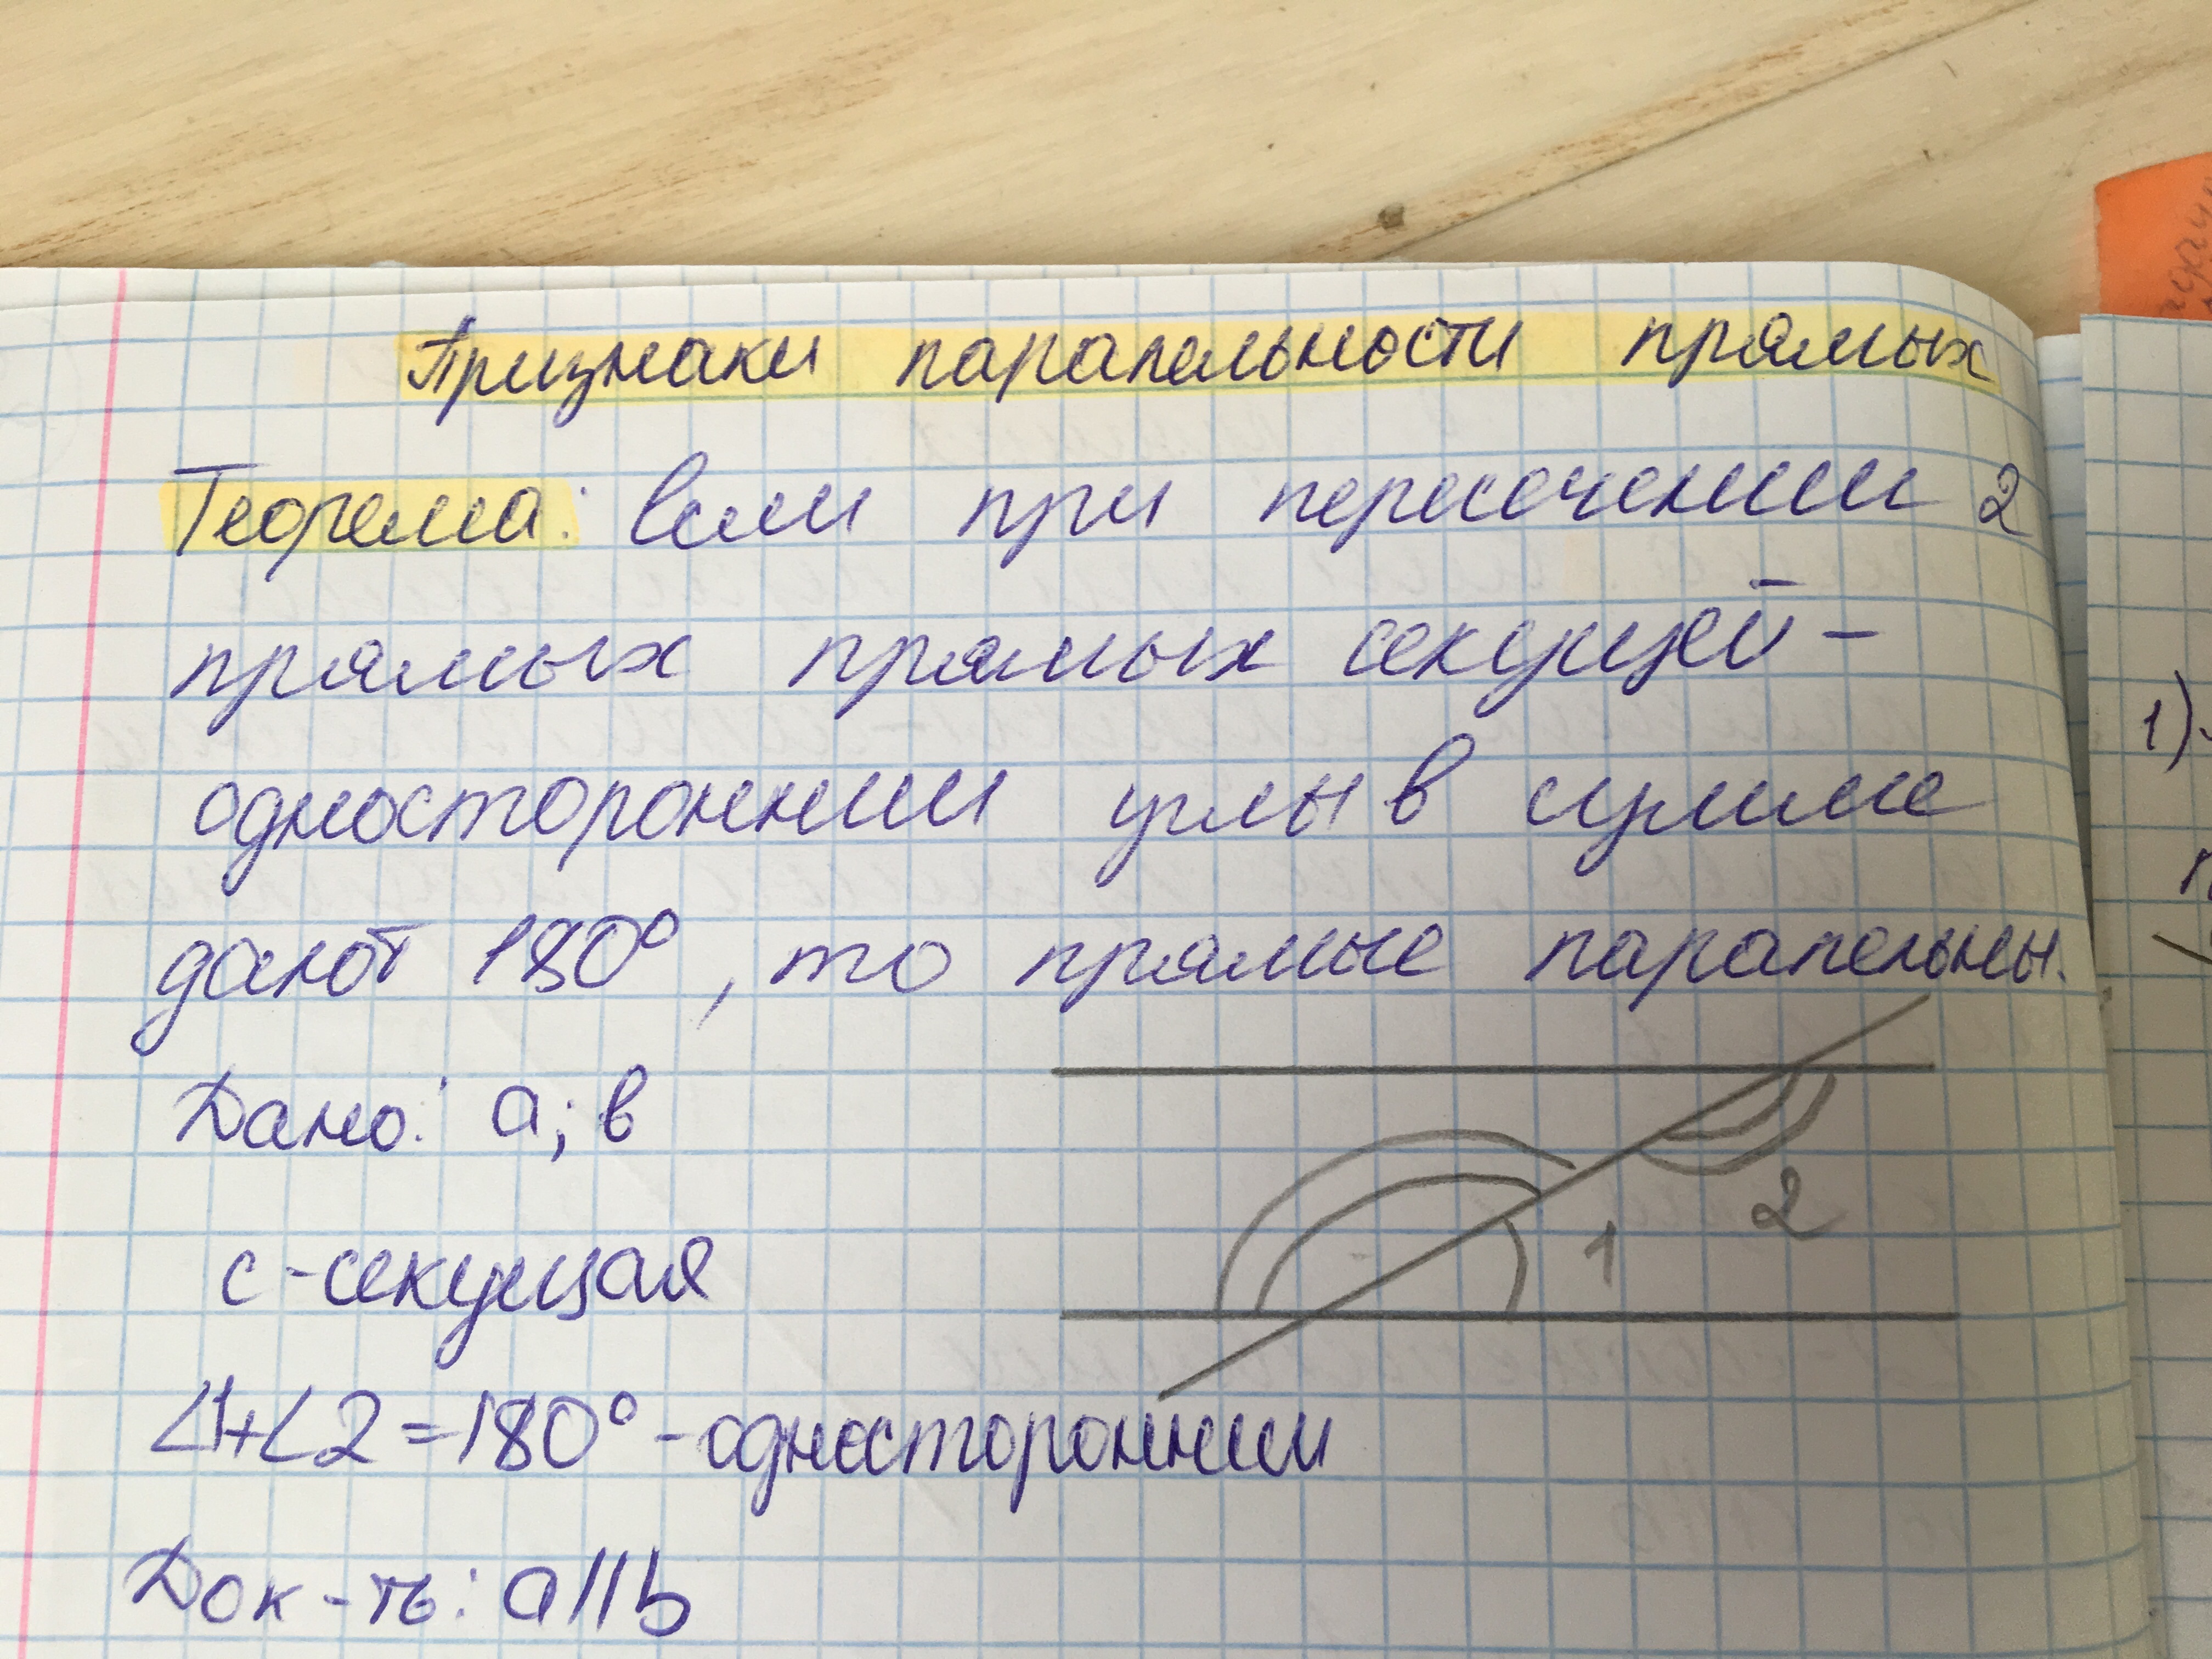 Признаки парапельности прямых
Теорема: если при пересечении 2
прямых прямых секущей -
одностороннии углы в сумме
дают 180°, то прямые парапельны.
Дано: а; в
с - секущая
∠1+∠2=180° - одностороннии
Док-ть: a||b
2
1
1)